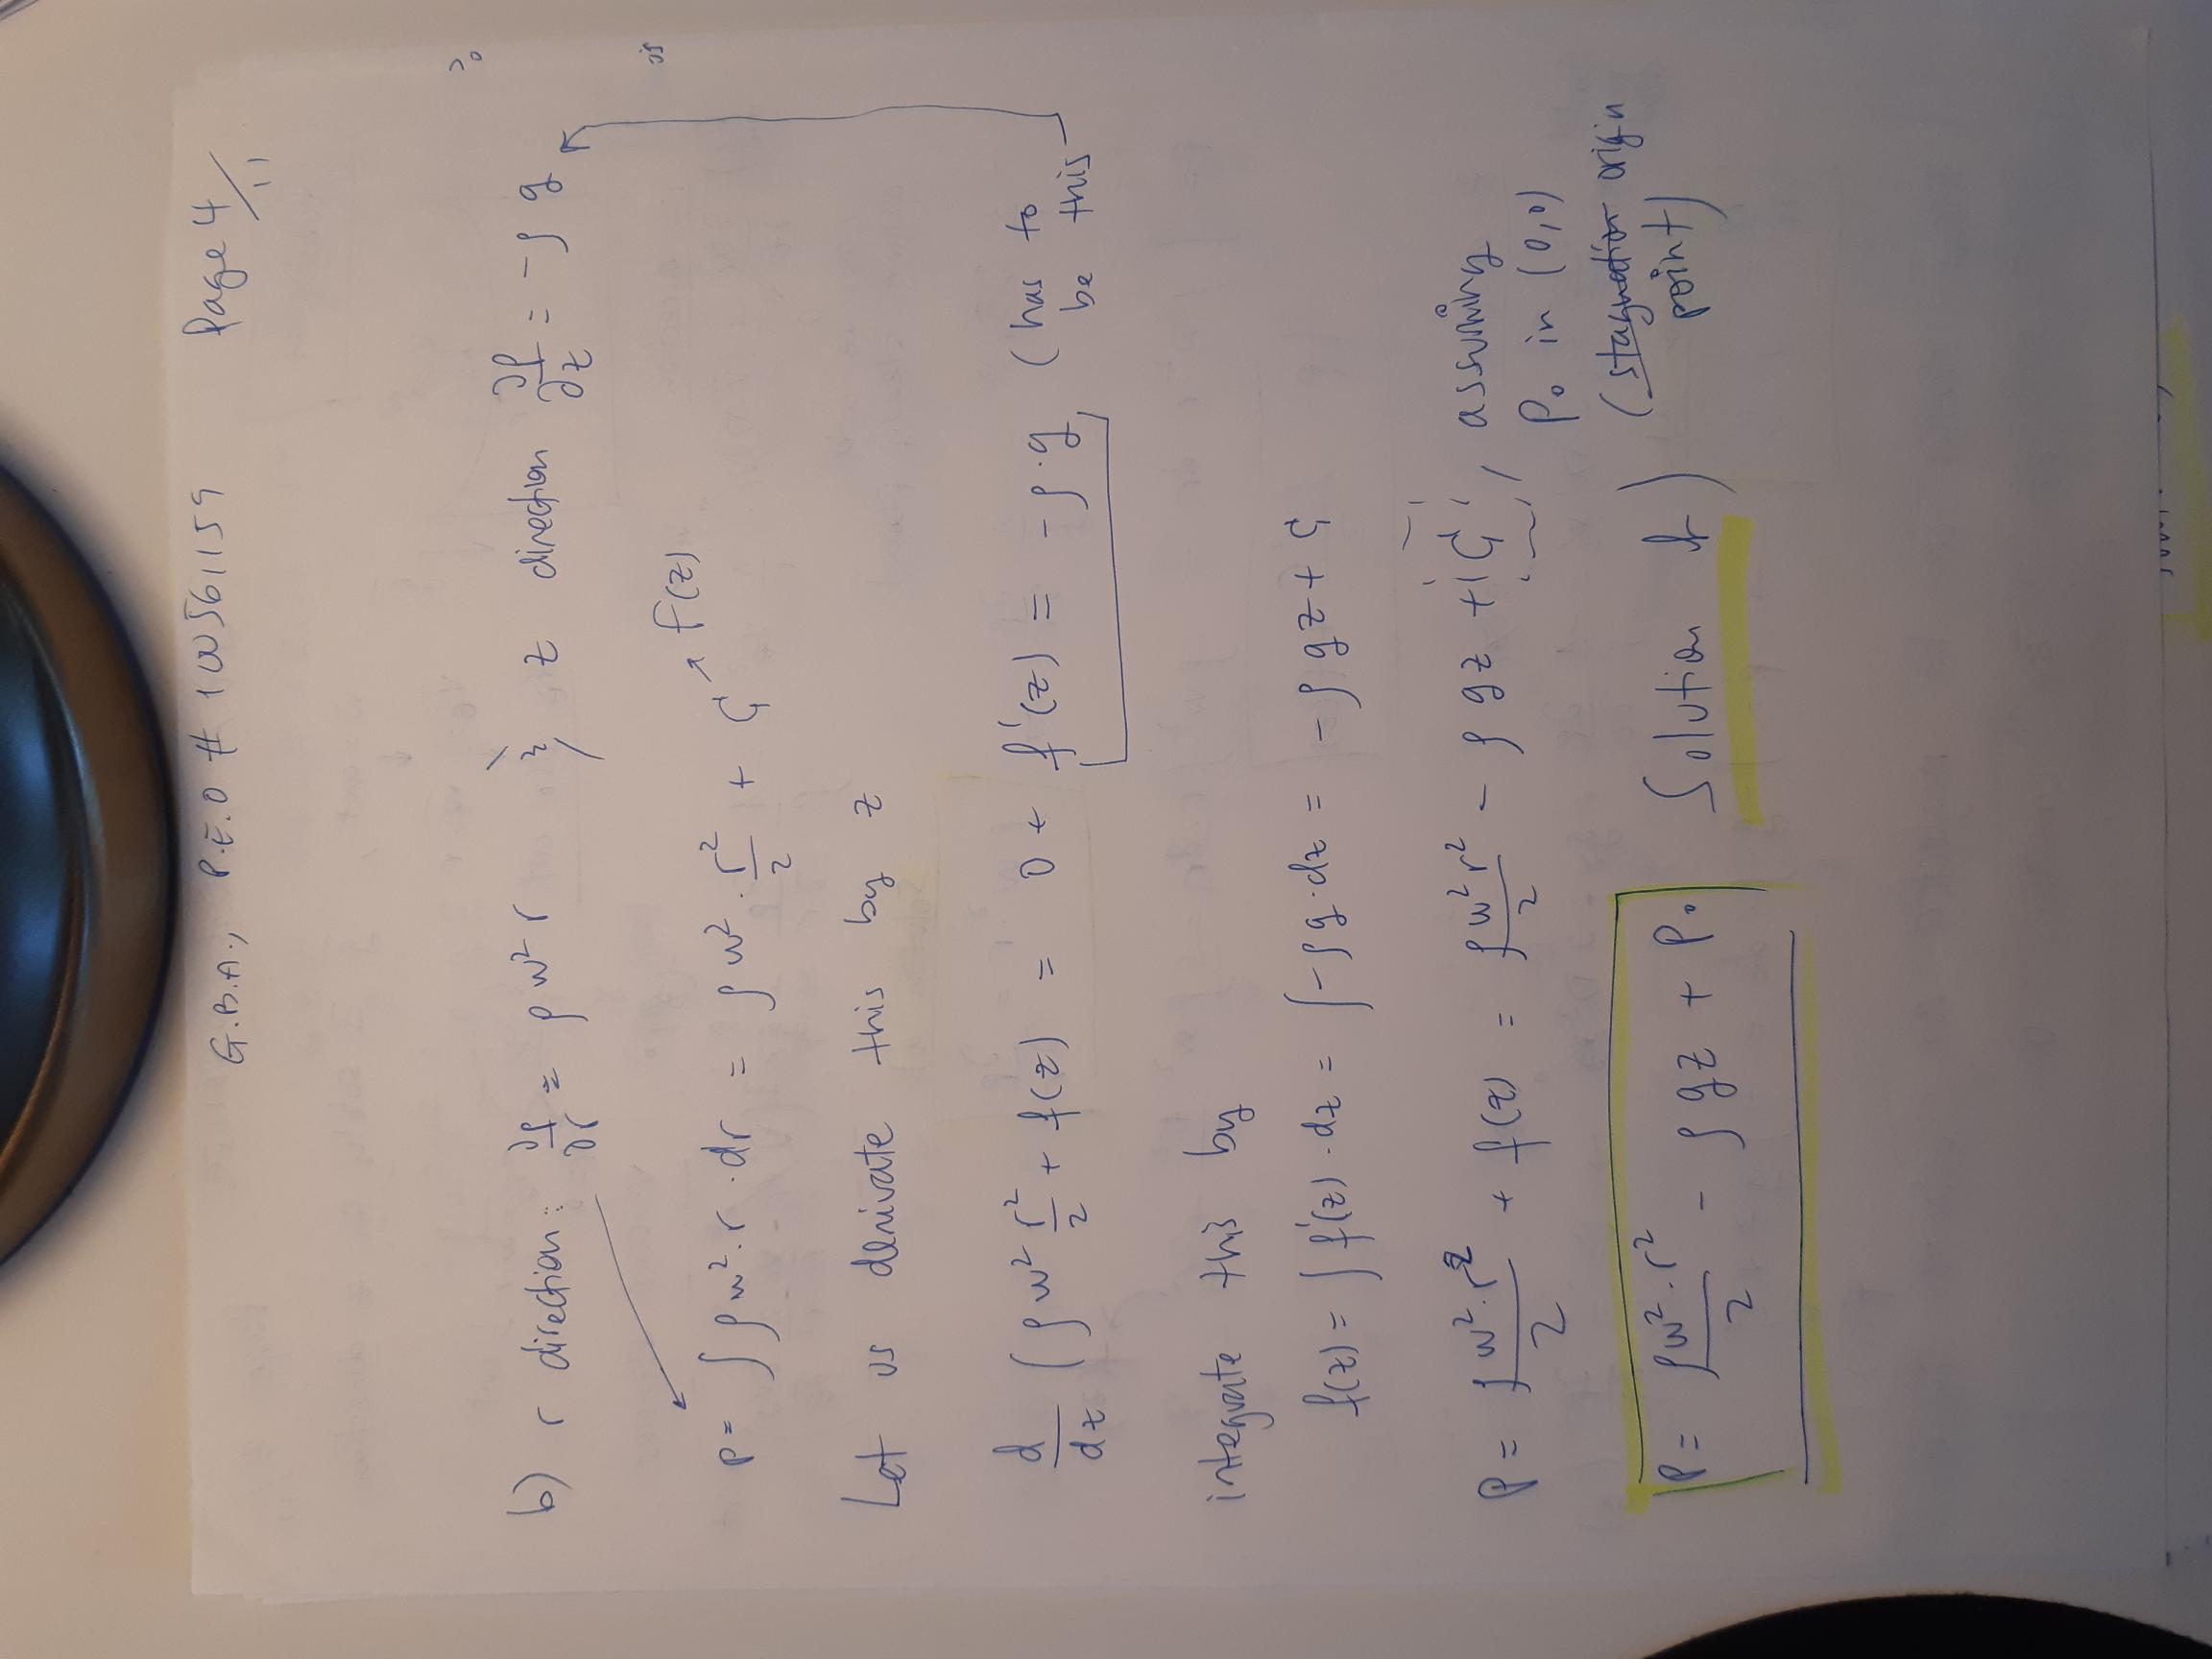 G.B.A., P.E.O # 100561159 Page 4/11
b) r direction: ∂p/∂r = ρ w² r ; z direction ∂p/∂z = -ρ g
p = ∫ ρ w² · r · dr = ρ w² · r²/2 + C₁ ↗ f(z)
Let us derivate this by z
d/dz (ρ w² r²/2 + f(z) = 0 + f'(z) = -ρ·g (has to be this
integrate this by
f(z) = ∫ f'(z) · dz = ∫ -ρ g · dz = -ρ g z + C₁
P = ρ w² · r²/2 + f(z) = ρ w² r²/2 - ρ g z + C₁, assuming
P₀ in (0,0)
(stagnation origin point)
P = ρ w² · r²/2 - ρ g z + P₀ Solution b)